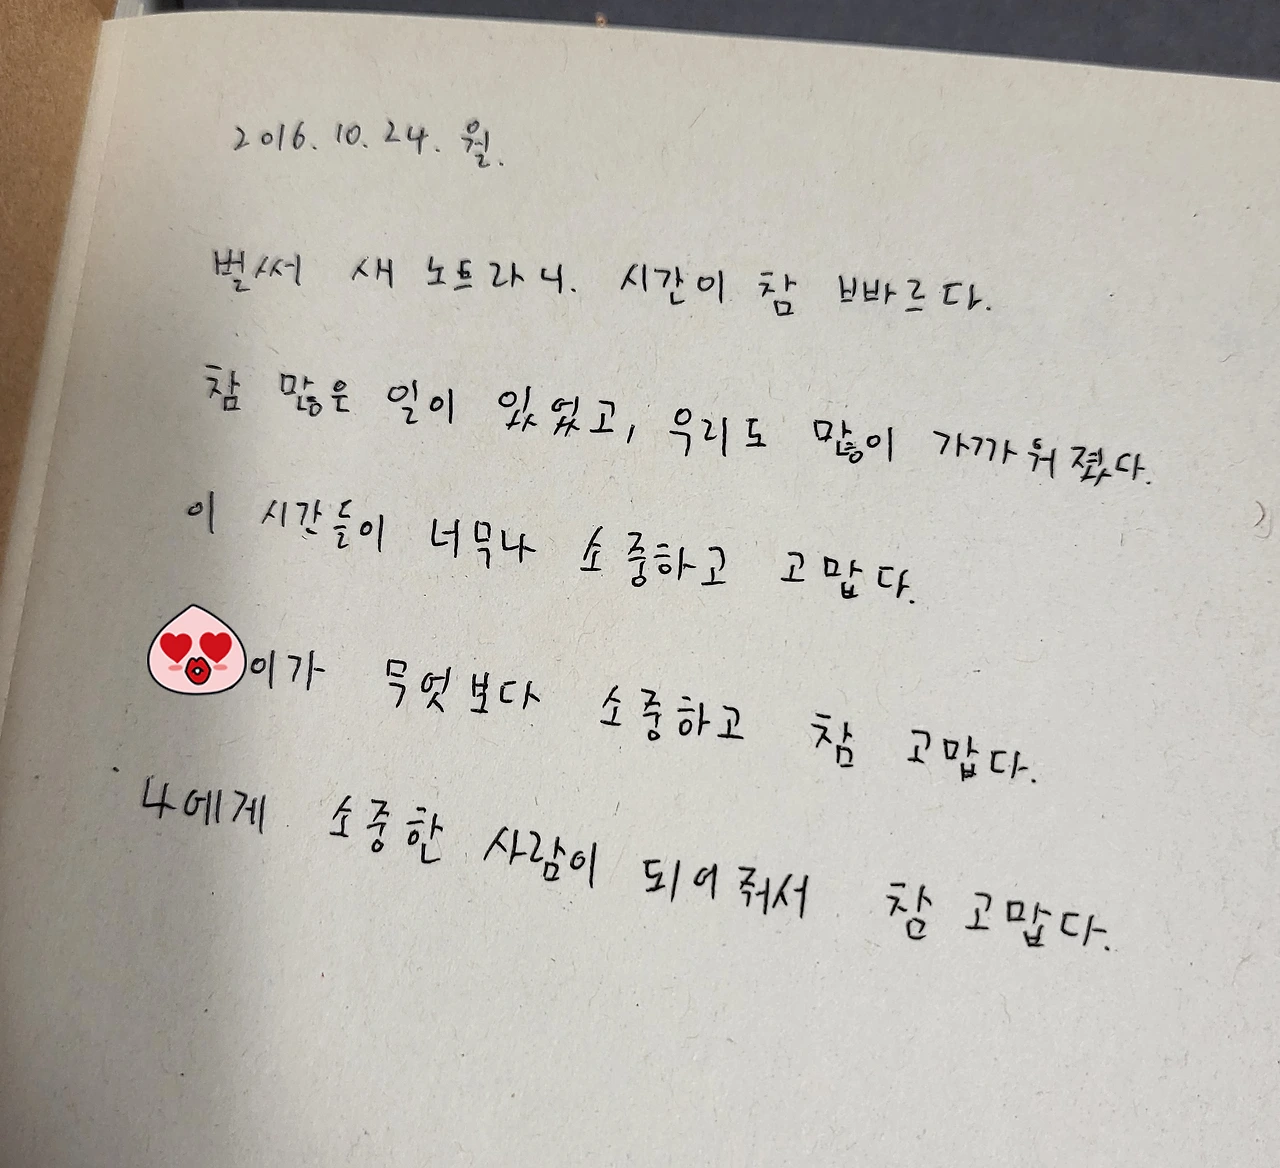 2016. 10. 24. 월.
벌써 새 노트라니. 시간이 참 빠르다.
참 많은 일이 있었고, 우리도 많이 가까워졌다.
이 시간들이 너무나 소중하고 고맙다.
이가 무엇보다 소중하고 참 고맙다.
나에게 소중한 사람이 되어줘서 참 고맙다.